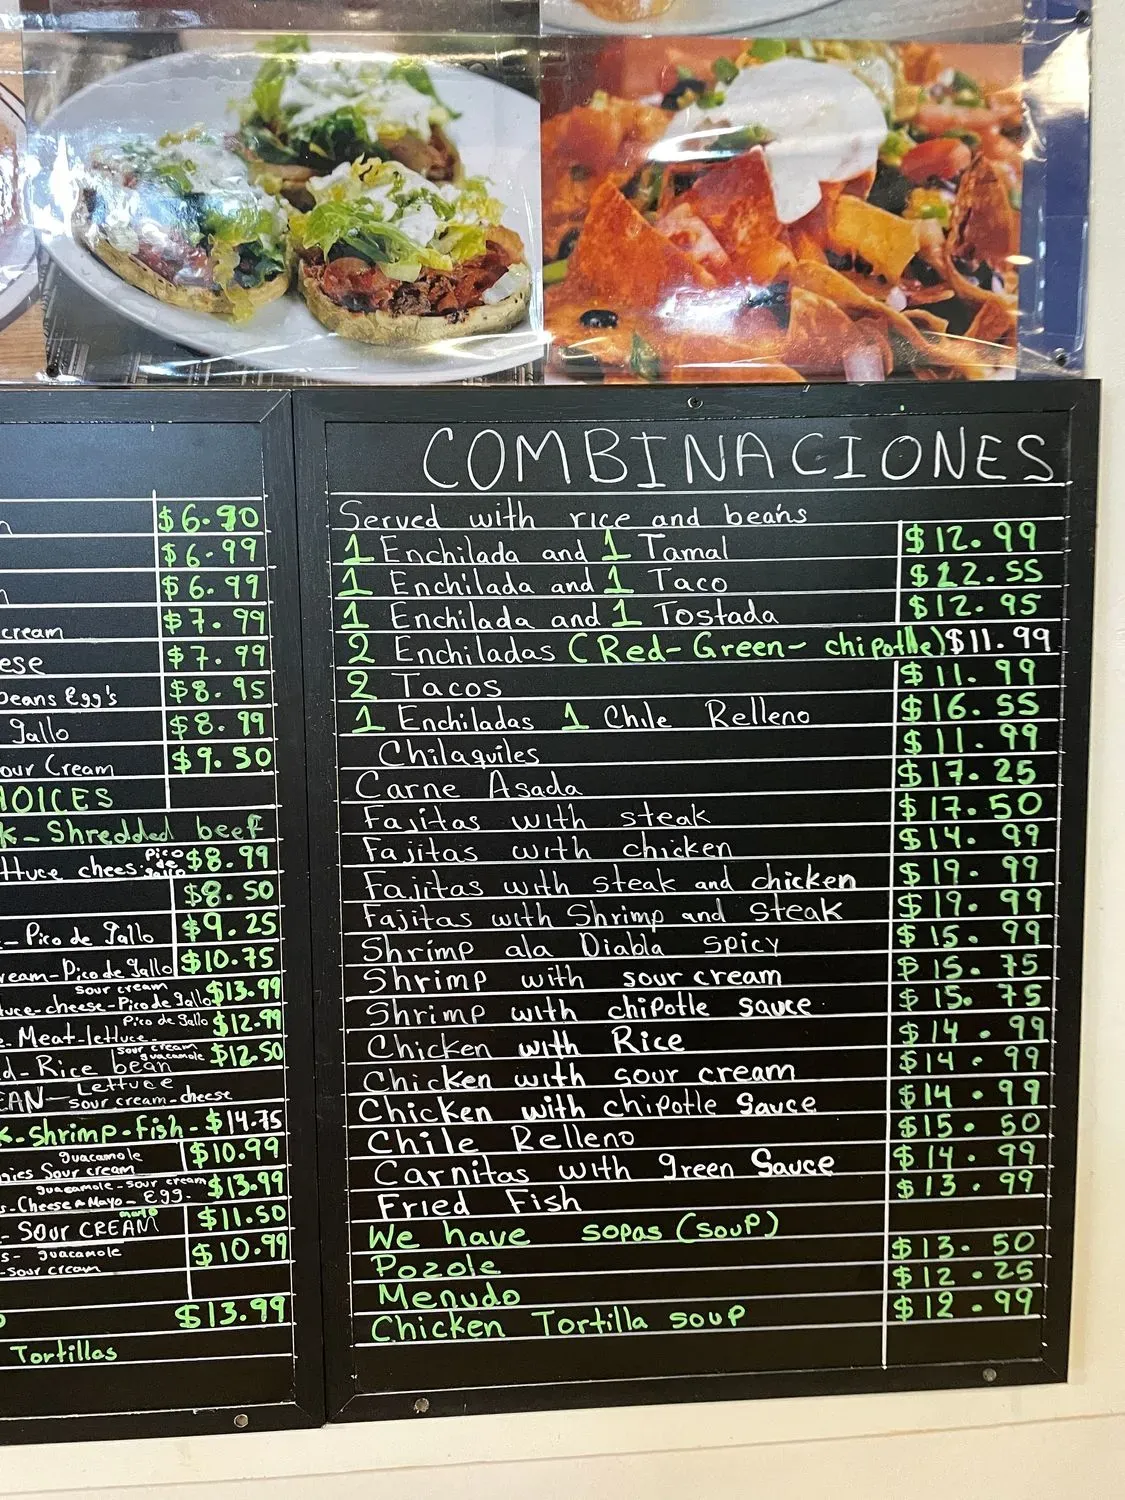 $6.90
$6.99
$6.99
cream $7.99
ese $7.99
beans Egg's $8.95
gallo $8.99
our Cream $9.50
HOICES
k- Shredded beef
ttuce chees. Pico de gallo $8.99
$8.50
- Pico de gallo $9.25
ream-Pico de gallo $10.75
sour cream
uce-cheese-Pico de gallo $13.99
Pico de gallo $12.99
e. Meat-lettuce.
sour cream guacamole
d- Rice bean $12.50
EAN Lettuce
sour cream-cheese
k-shrimp-fish- $14.75
guacamole $10.99
ries Sour cream
guacamole-sour cream $13.99
s-Cheese Mayo- Egg.
- SOUR CREAM mayo $11.50
s- guacamole $10.99
-sour cream
$13.99
Tortillas
COMBINACIONES
Served with rice and beans
1 Enchilada and 1 Tamal $12.99
1 Enchilada and 1 Taco $12.55
1 Enchilada and 1 Tostada $12.95
2 Enchiladas (Red-Green- chipotle) $11.99
2 Tacos $11.99
1 Enchiladas 1 Chile Relleno $16.55
Chilaquiles $11.99
Carne Asada $17.25
Fajitas with steak $17.50
Fajitas with chicken $14.99
Fajitas with steak and chicken $19.99
Fajitas with Shrimp and Steak $19.99
Shrimp ala Diabla spicy $15.99
Shrimp with sour cream $15.75
Shrimp with chipotle sauce $15.75
Chicken with Rice $14.99
Chicken with sour cream $14.99
Chicken with chipotle Sauce $14.99
Chile Relleno $15.50
Carnitas with green Sauce $14.99
Fried Fish $13.99
We have sopas (soup)
Pozole $13.50
Menudo $12.25
Chicken Tortilla soup $12.99